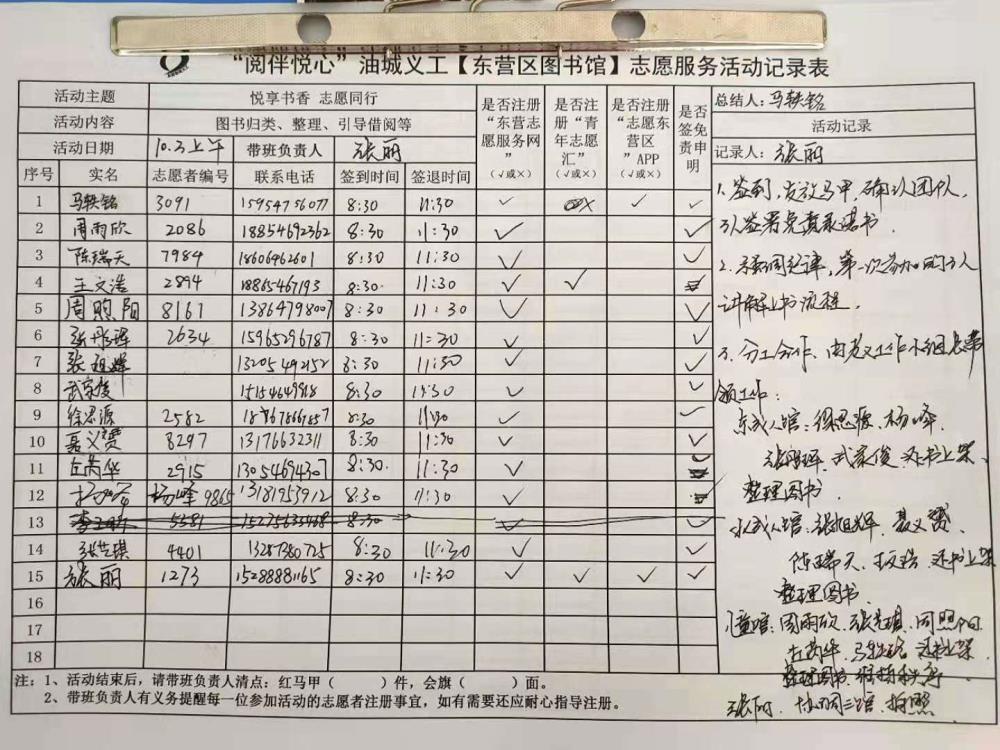 “阅伴悦心”油城义工【东营区图书馆】志愿服务活动记录表
活动主题 悦享书香 志愿同行
活动内容 图书归类、整理、引导借阅等
活动日期 10.3上午 带班负责人 张丽
序号 实名 志愿者编号 联系电话 签到时间 签退时间 是否注册“东营志愿服务网”（√或×） 是否注册“青年志愿汇”（√或×） 是否注册“志愿东营区”APP（√或×） 是否签免责申明
1 马轶铭 3091 15954756077 8:30 11:30 √ × √ √
2 周雨欣 2086 18854692362 8:30 11:30 √ √
3 陈瑞天 7984 18606462601 8:30 11:30 √ √
4 王文浩 2894 18865467193 8:30 11:30 √ √
5 周煦阳 8161 13864798007 8:30 11:30 √ √
6 张彤晖 2634 15965296787 8:30 11:30 √ √
7 张旭辉 13205492152 8:30 11:30 √ √
8 武家俊 8:30 11:30 √ √
9 徐思源 2582 8:30 11:30 √ √
10 聂义赟 8297 13176632311 8:30 11:30 √ √
11 左芮华 2915 13054694307 8:30 11:30 √
12 杨峰 9865 13181253912 8:30 11:30 √
13 5581 8:30 √ √
14 张芝琪 4401 13287380725 8:30 11:30 √ √
15 张丽 1273 15288881165 8:30 11:30 √ √ √ √
16
17
18
注：1、活动结束后，请带班负责人清点：红马甲（ ）件，会旗（ ）面。
2、带班负责人有义务提醒每一位参加活动的志愿者注册事宜，如有需要还应耐心指导注册。
总结人：马轶铭
活动记录
记录人：张丽
1、签到，发放马甲，确认团队，
引人签署免责承诺书
2、强调纪律，第一次参加的引人
讲解上书流程.
3、分工合作、由老义工作小组长带
领工作：
东成人馆：徐思源、杨峰、
张彤晖 武家俊 还书上架
整理图书
水成人馆：张旭辉、聂义赟、
陈瑞天、 还书上架
整理图书
童馆：周雨欣、张芝琪、周煦阳
左芮华、马轶铭 还书上架
整理图书 维持秩序
张丽、协调三馆、拍照